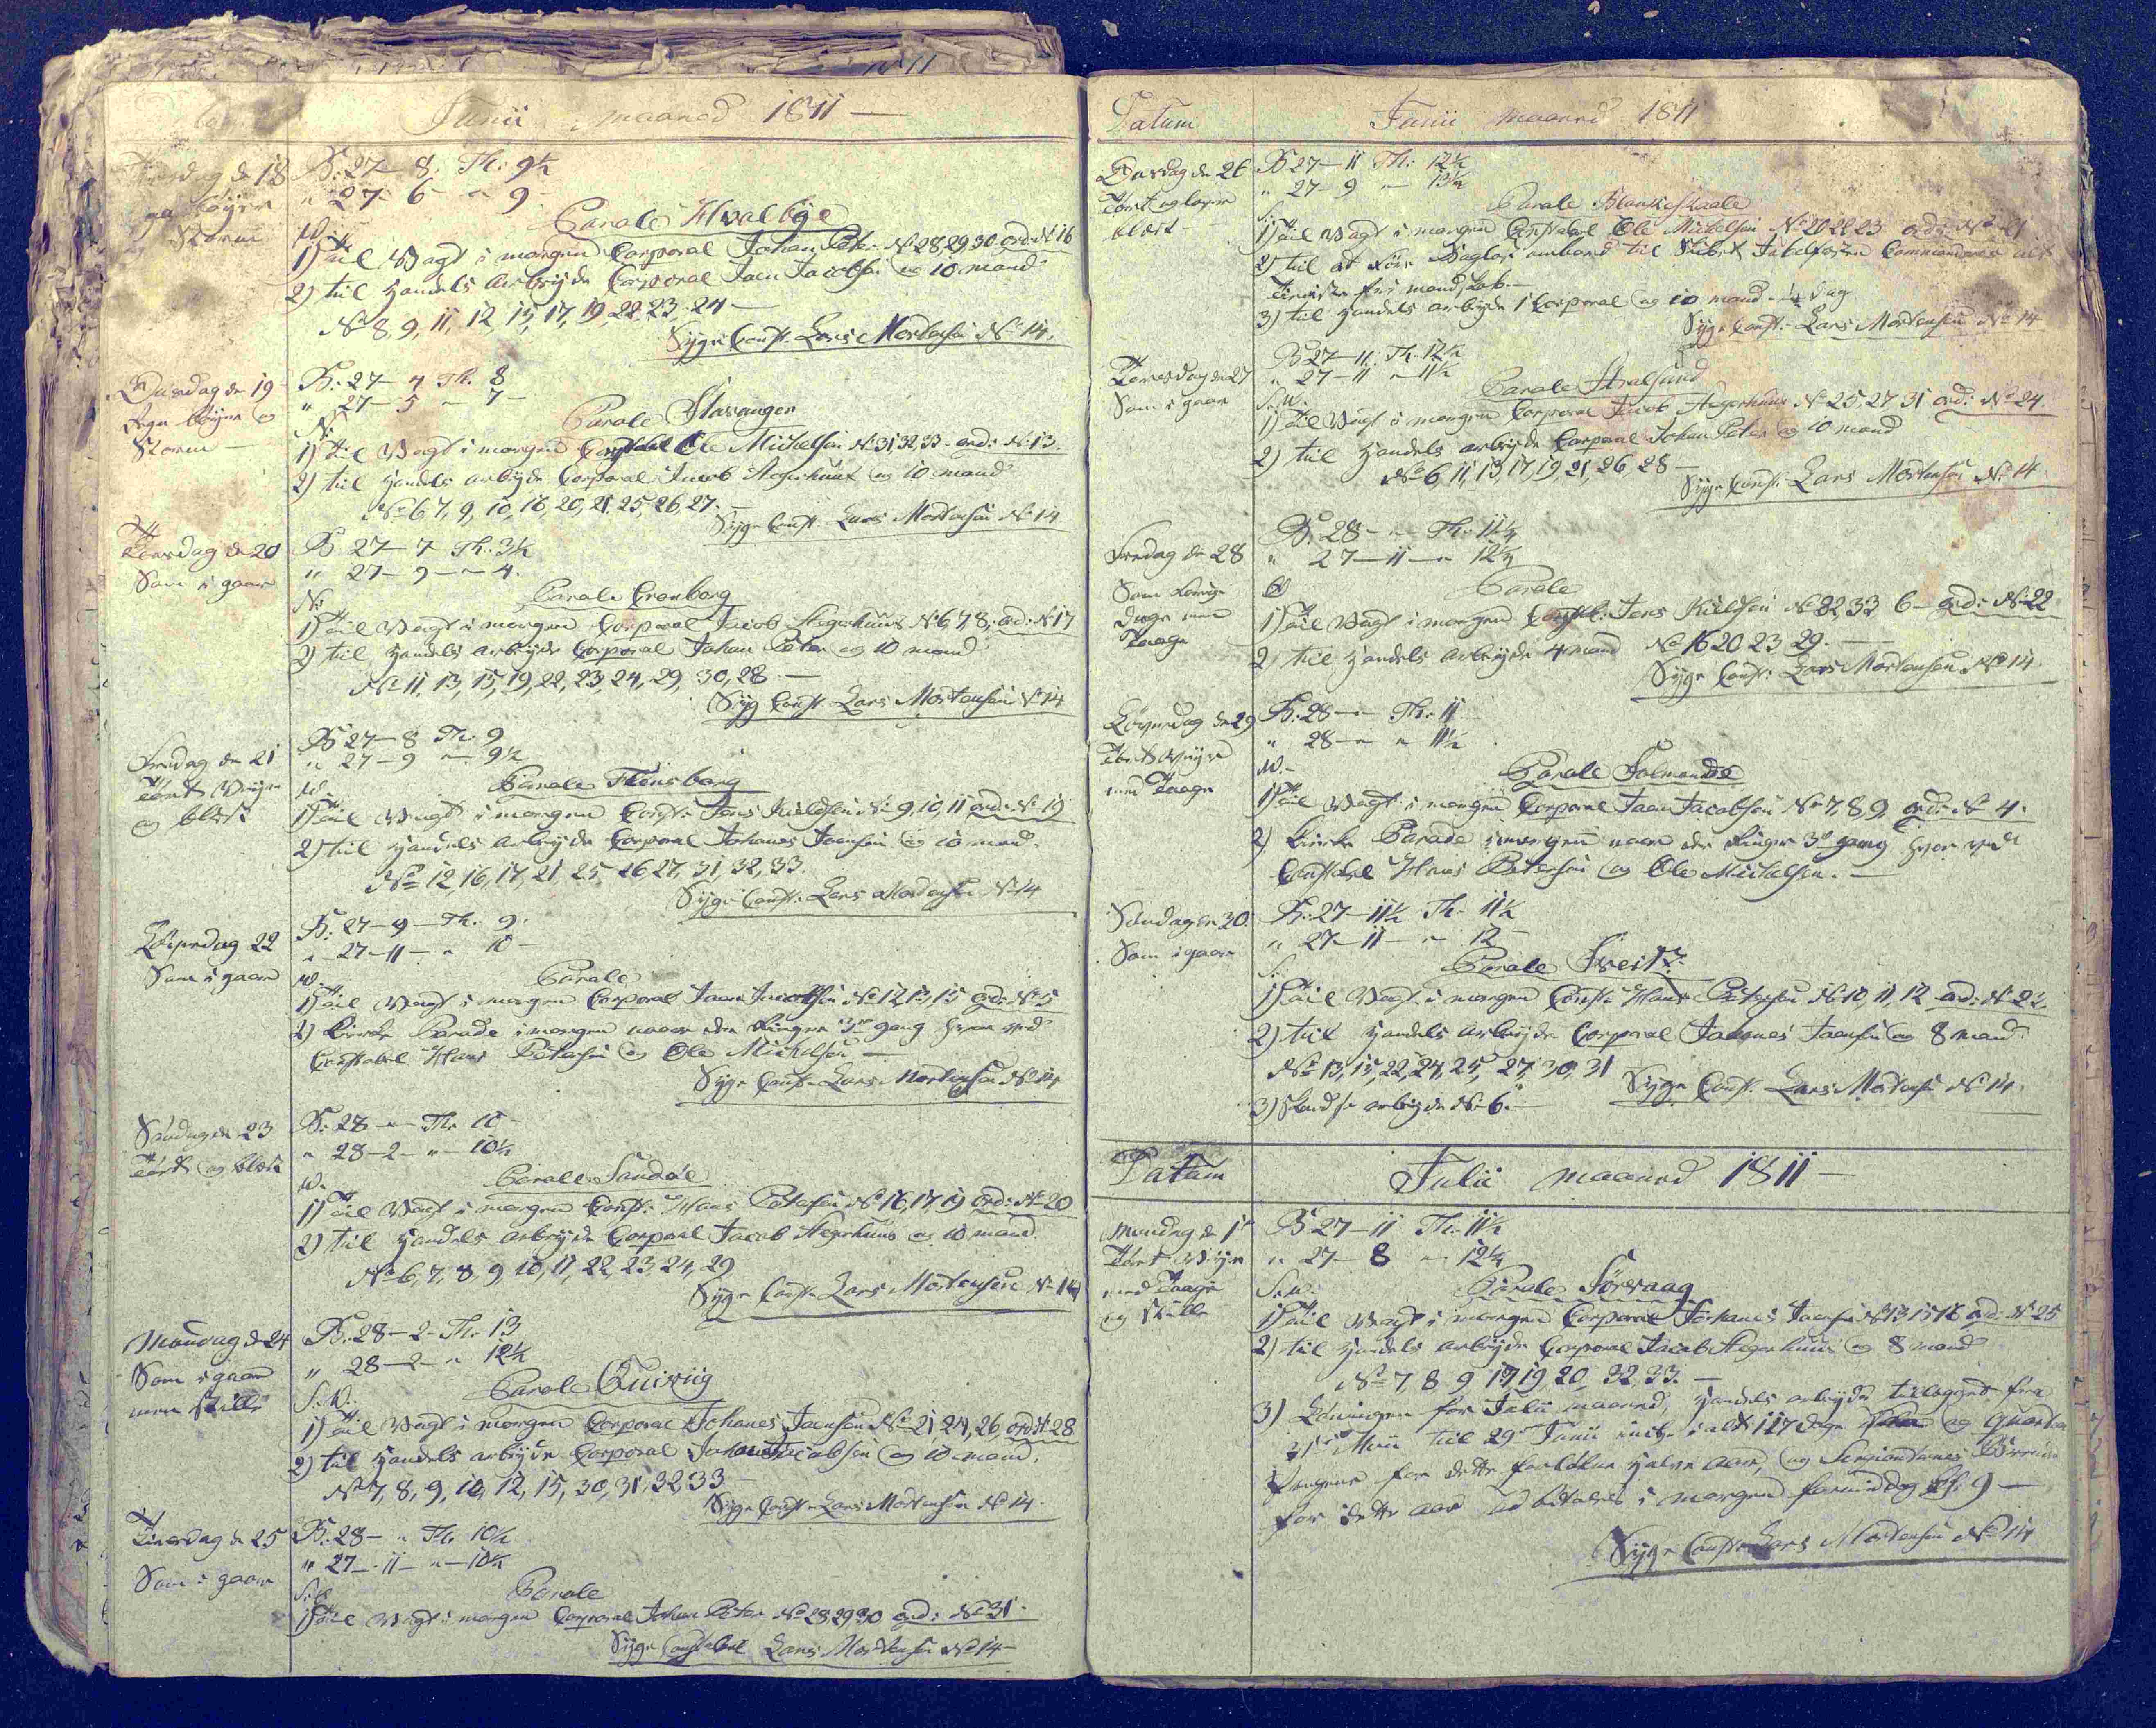 Junii maaned 1811 —
dag d 18
og Bÿer
Storm
B: 27 – 8. Th: 9½
" 27 – 6 – " 9
W.
Parole Hvalbÿe
1) Til Vagt i morgen Corporal Johan Peter N° 28, 29, 30 ord: N° 16
2) til Handels arbejde Corporal Joen Jacobsen og 10 mand
N° 8, 9, 11, 12, 15, 17, 19, 22, 23, 24 —
Syge Const. Lars Mortensen N° 14.
Onsdag de 19
Regn Bÿger og
Storm —
B: 27 – 4 Th. 8
" 27 – 5 – " 7 –
N:
Parole Stavanger
1) til Vagt i morgen Constabel Ole Mickelsen N° 31, 32, 33 – ord: N° 13.
2) til Handels arbejde Corporal Jacob Hegerhuus og 10 mand
N° 6, 7, 9, 10, 16, 20, 21, 25, 26, 27. —
Syge Const Lars Mortensen N° 14
Torsdag de 20
Som i gaar
B 27 – 7 – Th. 3½
" 27 – 9 – " 4.
N:
Parole Cronborg
1) Til Vagt i morgen Corporal Jacob Hegerhuus N° 6, 7, 8, ord: N° 17
2) til Handels arbejde Corporal Johan Peter og 10 mand
N° 11, 13, 15, 19, 22, 23, 24, 29, 30, 28 —
Syg Const Lars Mortensen N° 14
Fredag de 21
Tört Vejer
og blæst
B 27 – 8 Th. 9
" 27 – 9 " – 9½
W.
Parole Flensborg
1) Til Vagt i morgen Const: Jens Kieldsen N° 9, 10, 11 ord: N° 19
2) til Handels arbejde Corporal Johanes Joensen og 10 mand.
N° 12, 16, 17, 21, 25, 26, 27, 31, 32, 33.
Syge Const. Lars Mortensen N° 14
Löverdag 22
Som i gaar
B: 27 – 9 – Th. 9.
" – 27 – 11 – " 10 –
W.
Parole
1) Til Vagt i morgen Corporal Joen Jacobsen N° 12, 13, 15 ord: N° 5
2) Kirke Parade i morgen naar der Ringer 3de gang hvor ved
Constabel Hans Petersen og Ole Mickelsen —
Syge Const. Lars Mortensen N° 14
Söndag de 23
Tört og blæst
B: 28 – " – Th. 10 –
" 28 – 2 – " – 10½
W.
Parole Sandöe
1) Til Vagt i morgen Const: Hans Petersen N° 16, 17, 19 ord: N° 20
2) til Handels arbejde Corporal Jacob Hegerhuus og 10 mand.
N° 6, 7, 8, 9, 10, 11, 22, 23, 24, 29
Syge Const. Lars Mortensen N° 14
Mandag de 24
Som i gaar
men stille
B: 28 – 2 – Th. 13
" 28 – 2 – " 12½
S.W.
Parole Quiviig
1) Til Vagt i morgen Corporal Johanes Joensen N° 21, 24, 26, ord N° 28
2) til Handels arbejde Corporal Joen Jacobsen og 10 mand.
N° 7, 8, 9, 10, 12, 15, 30, 31, 32, 33 –
Syge Const. Lars Mortensen N° 14.
Tirsdag de 25
Som i gaar
B: 28 – " Th. 10½
" 27 – 11 – " – 10½
Parole
1) Til Vagt i morgen Corporal Johan Peter N° 28, 29, 30 ord: N° 31.
Syge Constabel Lars Mortensen N° 14 –
Datum
Junii maaned 1811
Onsdag de 26
Tört og
blæst –
B 27 – 11 Th: 12½
" 27 – 9 " – 13½
S:
Parole
1) Til Vagt i morgen Constabel Ole Mickelsen N° 20, 22, 23 ord: N° 21
2) til at före ombord til Skibet Commandeur
mandskab. —
3) til Handels arbejde 1 Corporal og 10 mand. ½ dag
Syge Const: Lars Mortensen N° 14
Torsdag de 27
Som i gaar
B 27 – 11. Th. 12½
" 27 – 11 " – 11½
S.W.
Parole Stralsund
1) Til Vagt i morgen Corporal Jacob Hegerhuus N° 25, 27, 31 ord: N° 24.
2) til Handels arbejde Corporal Johan Peter og 10 mand
N° 6, 11, 13, 17, 19, 21, 26, 28 –
Syge Const: Lars Mortensen N° 14
Fredag de 28
Som
dage men
Taage
B: 28 – " – Th: 11¼
" 27 – 11 – " 12¼
Parole
1) Til Vagt i morgen Constbl: Jens Kieldsen N° 32, 33 6 – ord: N° 22
2) til Handels arbejde 4 mand N° 16 20 23 29. —
Syge Const: Lars Mortensen N° 14.
Löverdag de 29
Tört Vejer
med Taage
B: 28 – " – Th. 11
" 28 – " " 11½
W. –
Parole
1) Til Vagt i morgen Corporal Joen Jacobsen N° 7, 8, 9, ord: N° 4.
2) Kirke Parade i morgen naar der Ringer 3de gang hvor ved
Constabel Hans Petersen og Ole Mickelsen. —
Söndag de 30.
Som i gaar
B: 27 – 11½ Th. 11½
" 27 – 11 – " 12 –
S:
Parole Sveitz
1) Til Vagt i morgen Const: Hans Petersen N° 10, 11, 12 ord: N° 22.
2) til Handels arbejde Corporal Johanes Joensen og 8 mand
N° 13, 15, 22, 24, 25, 27, 30, 31
3) arbejde N° 6. –
Syge Const. Lars Mortensen N° 14.
Datum
Julii maaned 1811 –
Mandag de 1te
Tört Vejer
med Taage
og stille
B 27 – 11 Th. 11½
" 27 – 8 " – 12¼
S.W.
Parole Sörvaag
1) Til Vagt i morgen Corporal Johanes Joensen N° 13 15 16 ord: N° 25
2) til Handels arbejde Corporal Jacob Hegerhuus og 8 mand
N° 7, 8, 9, 17, 19, 20, 32, 33. —
3) Löningen for Julii maaned, Handels arbejde tillægget fra
31te Maii til 29de Junii incl: i alt 117 dage og Quarteer
Pengene for dette forlöbne halve aar, og
for dette aar udbetales i morgen formiddag Kl. 9 —
Syge Const Lars Mortensen N° 14